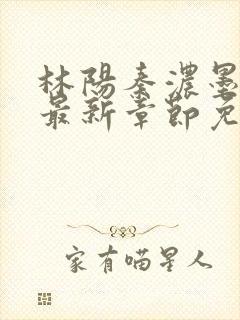 林阳秦浓墨
最新章节免
家有喵星人